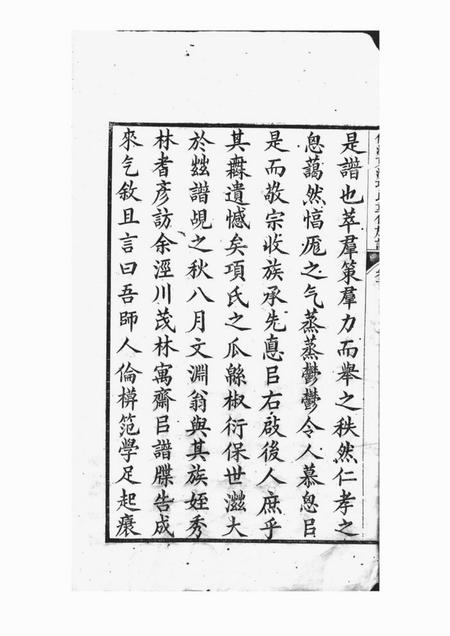 是譜也萃羣策羣力而舉之秩然仁孝之
恖藹然愊𢊍之气蒸蒸鬱鬱令人慕恖㠯
是而敬宗收族承先悳㠯右啟後人庶乎
其無遺憾矣項氏之瓜緜椒衍保世滋大
於兹譜覘之秋八月文淵翁與其族姪秀
林耆彥訪余涇川茂林寓齋㠯譜牒告成
來乞敘且言曰吾師人倫模笵學足起㾕